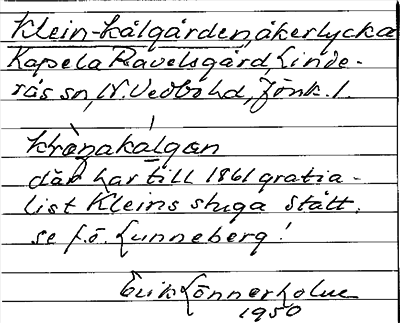 Klein-kålgården, åkerlycka
Kapela Ravelsgård, Linde-
rås sn, N. Vedbo hd, Jönk. l.
Kròŋakálgan
där har till 1861 gratia-
list Kleins stuga stått.
se f.ö. Lunneberg!
Erik Lönnerholm
1950